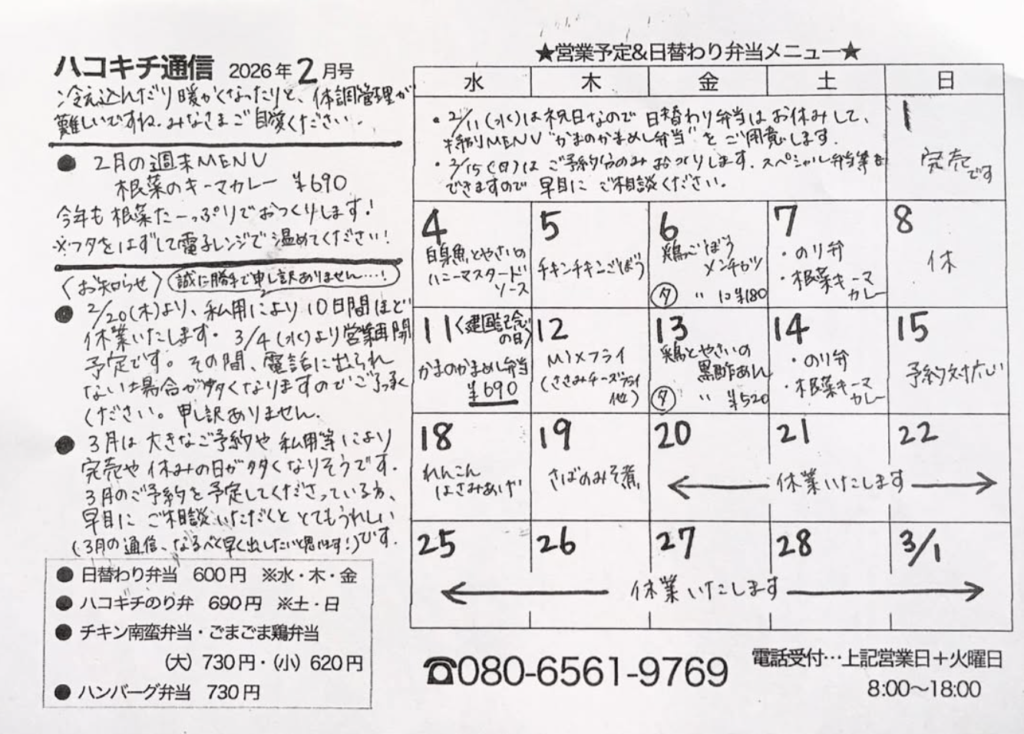 ハコキチ通信 2026年2月号
冷え込んだり暖かくなったりと、体調管理が
難しいですね。みなさまご自愛ください。
● 2月の週末MENU
根菜のキーマカレー ¥690
今年も根菜たーっぷりでおつくりします!
※フタをはずして電子レンジで温めてください!
〈お知らせ〉(誠に勝手で申し訳ありません…!)
● 2/20(木)より、私用により10日間ほど
休業いたします。3/4(水)より営業再開
予定です。その間、電話に出られ
ない場合が多くなりますのでご了承
ください。申し訳ありません。
● 3月は大きなご予約や私用等により
完売や休みの日が多くなりそうです。
3月のご予約を予定してくださっている方、
早目にご相談いただくととてもうれしい
です。
(3月の通信、なるべく早く出したいと思います!)
● 日替わり弁当 600円 ※水・木・金
● ハコキチのり弁 690円 ※土・日
● チキン南蛮弁当・ごまごま鶏弁当
(大)730円・(小)620円
● ハンバーグ弁当 730円
★営業予定&日替わり弁当メニュー★
水 木 金 土 日
・2/11(水)は祝日なので日替わり弁当はお休みして、
特別MENU"かまのかまめし弁当"をご用意します。
・2/15(日)はご予約分のみおつくりします。スペシャル弁当等も
できますので早目にご相談ください。
1
完売です
4
白身魚とやさいの
ハニーマスタード
ソース
5
チキンチキンごぼう
6
鶏ごぼう
メンチカツ
(夕) 〃 1コ¥180
7
・のり弁
・根菜キーマ
カレー
8
休
11(建国記念の日)
かまのかまめし弁当
¥690
12
MIXフライ
(ささみチーズフライ
他)
13
鶏とやさいの
黒酢あん
(夕) 〃 ¥520
14
・のり弁
・根菜キーマ
カレー
15
予約対応い
18
れんこん
はさみあげ
19
さばのみそ煮
20 21 22
休業いたします
25 26 27 28 3/1
休業いたします
☎080-6561-9769
電話受付…上記営業日+火曜日
8:00〜18:00